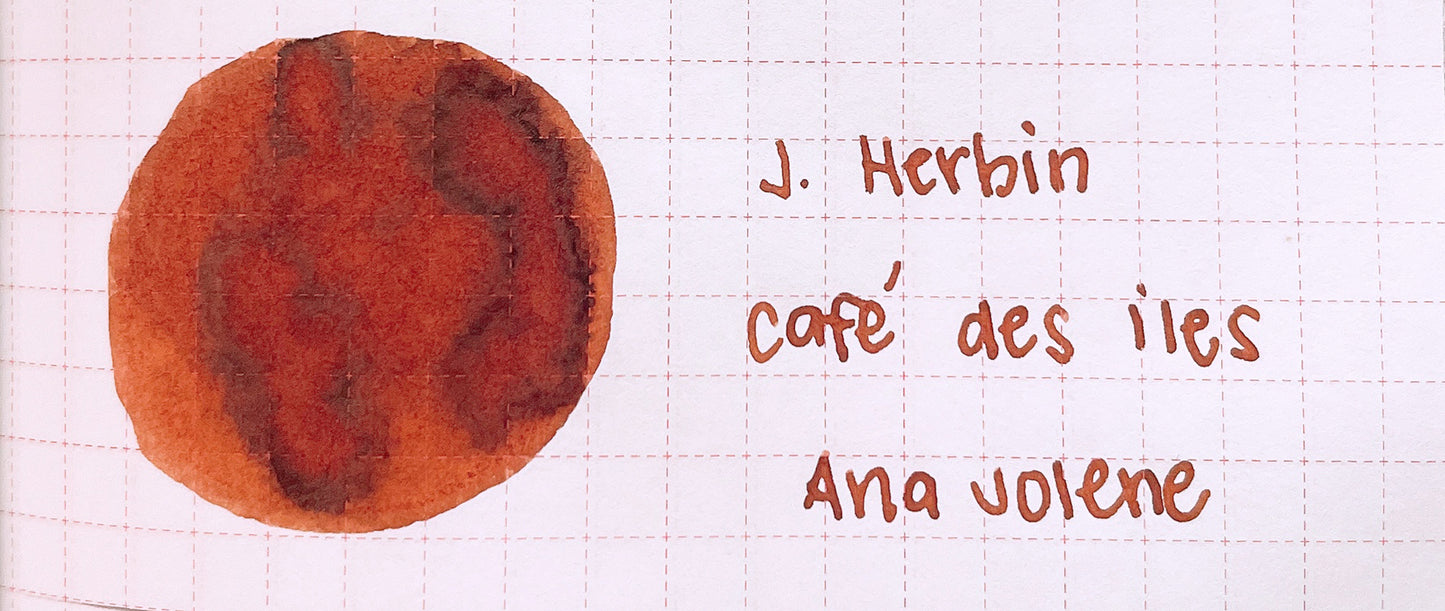 J. Herbin
café des iles
Ana Jolene